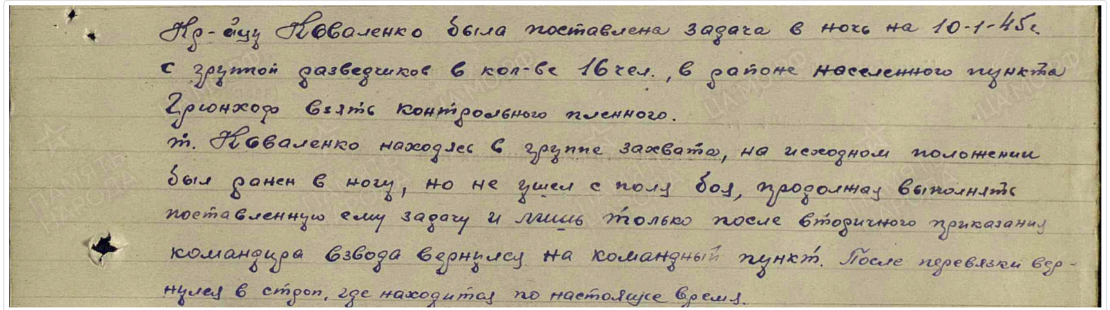 Кр-айцу Коваленко была поставлена задача в ночь на 10-1-45г.
с группой разведчиков в кол-ве 16 чел., в районе населенного пункта
Грюнхоф взять контрольного пленного.
т. Коваленко находясь в группе захвата, на исходном положении
был ранен в ногу, но не ушел с поля боя, продолжая выполнять
поставленную ему задачу и лишь только после вторичного приказания
командира взвода вернулся на командный пункт. После перевязки вер-
нулся в строй, где находится по настоящее время.